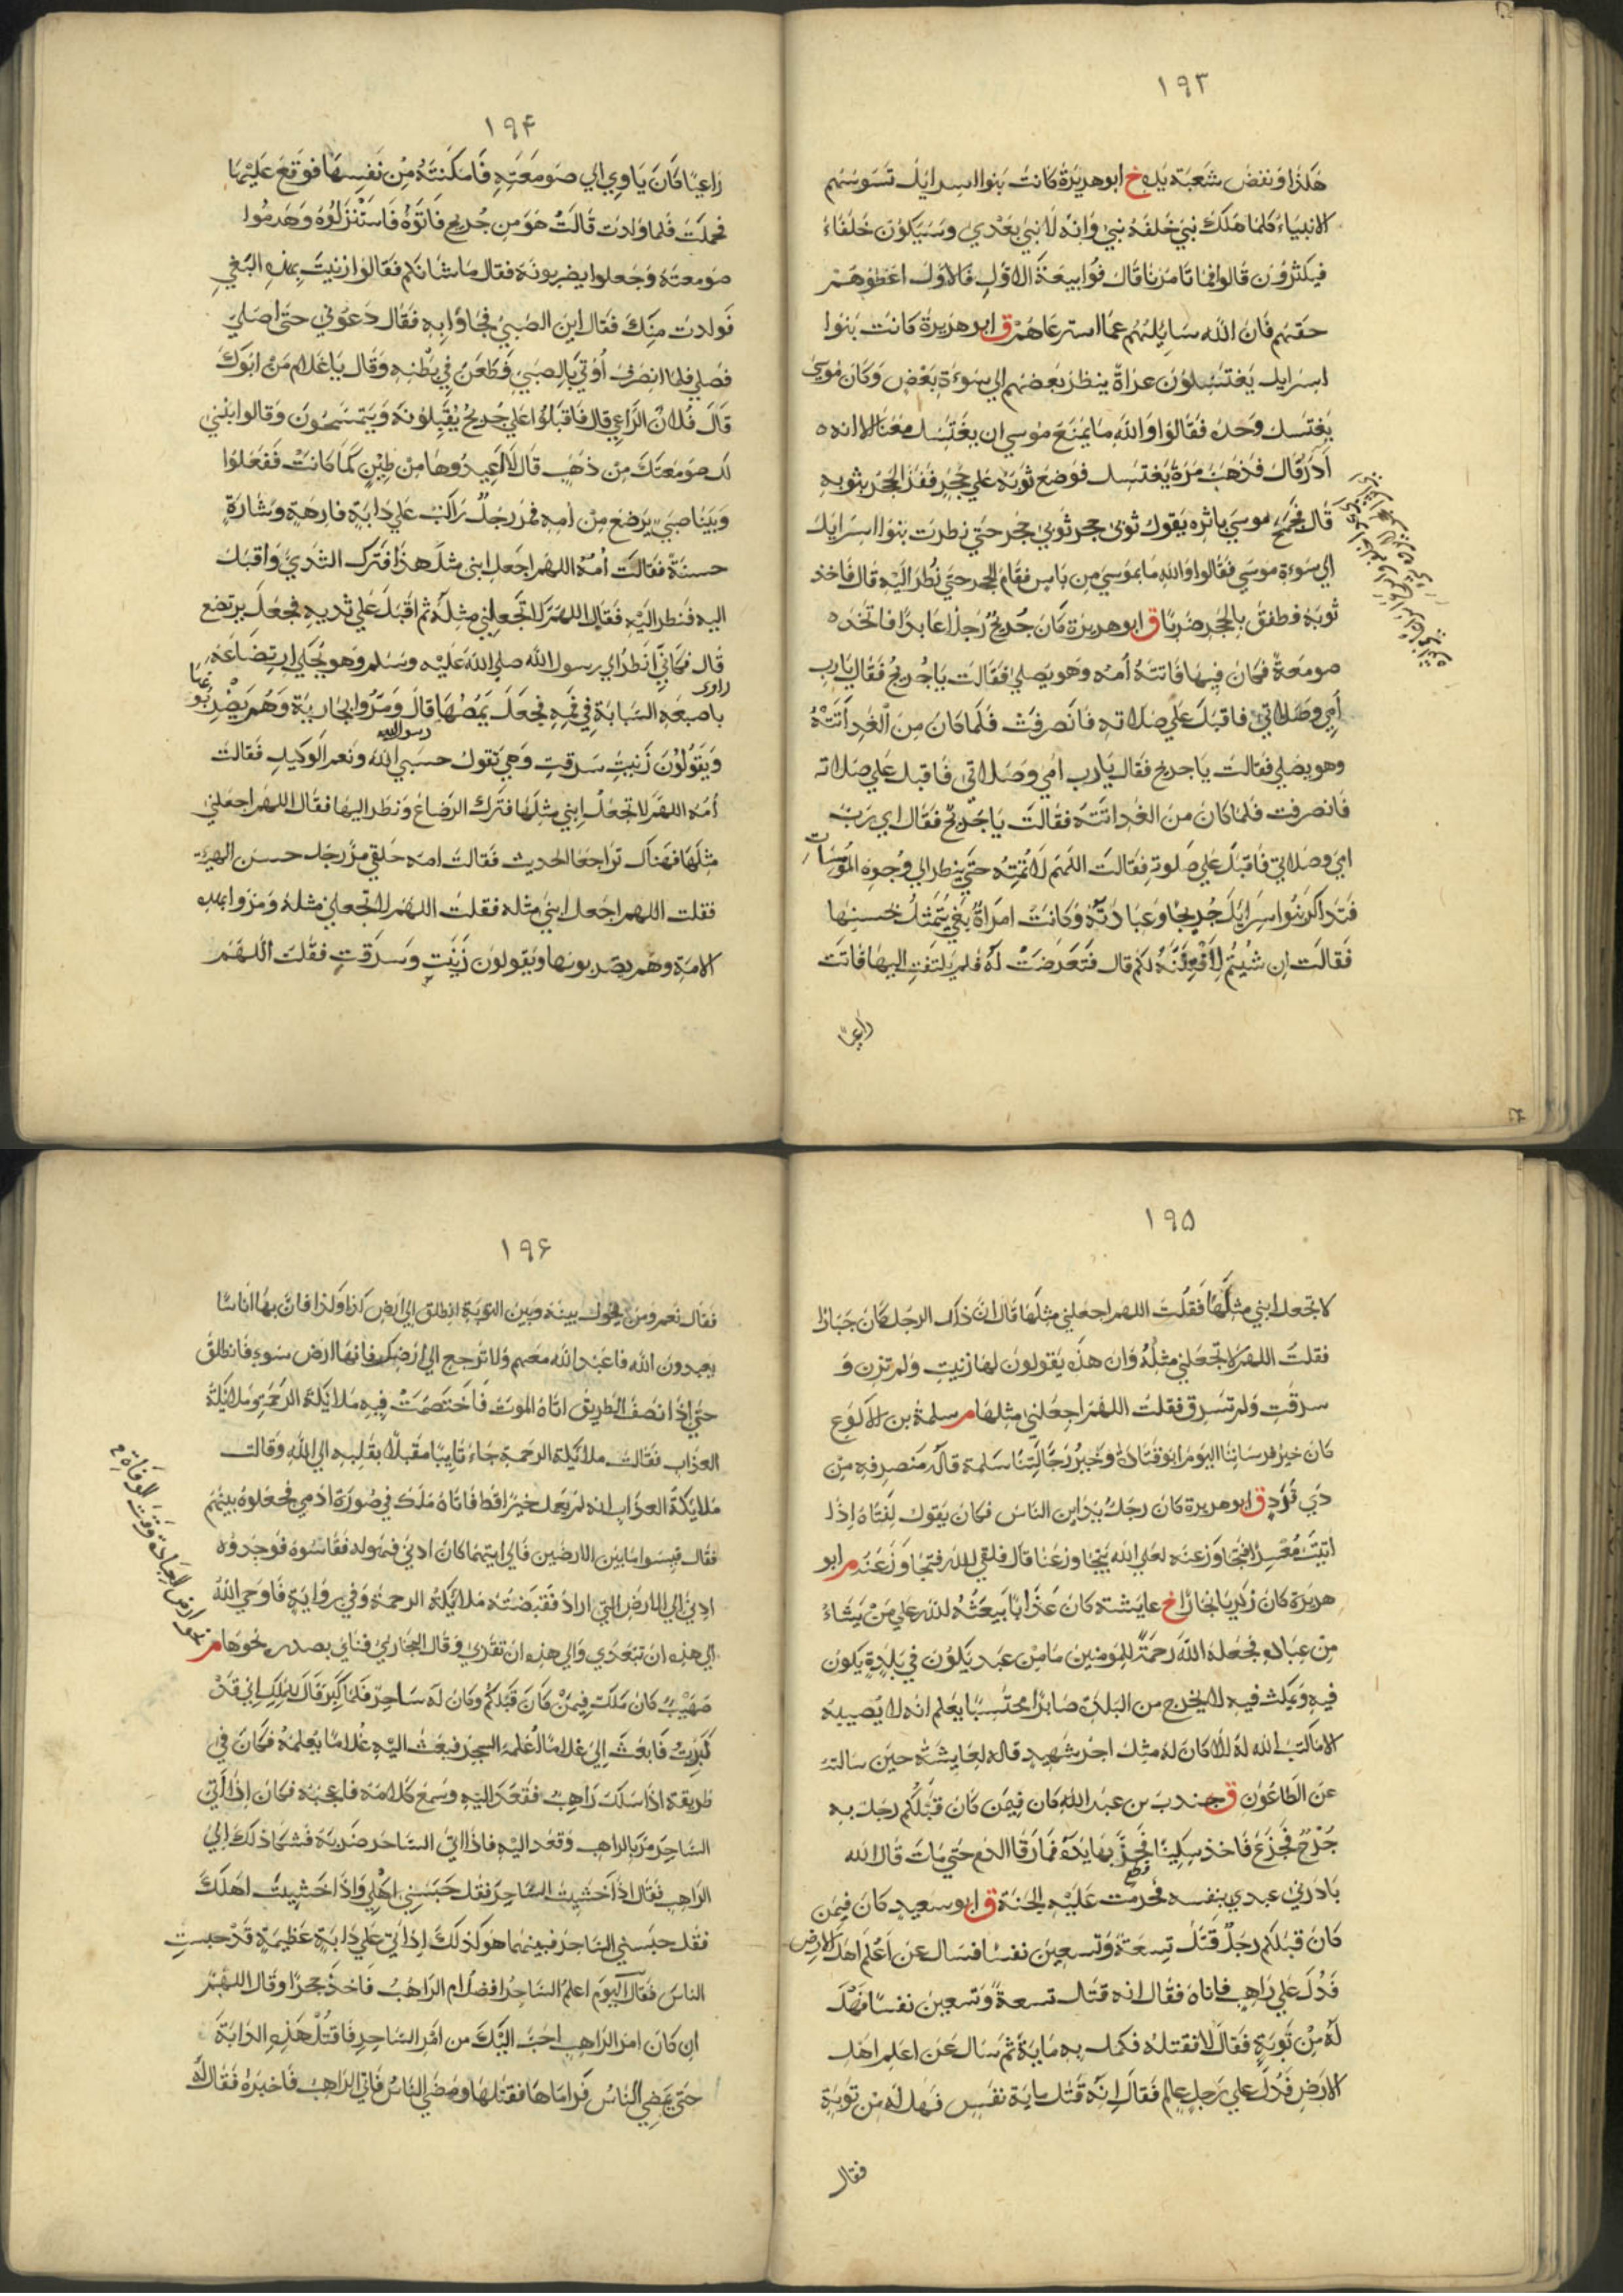 ١٩٣
هكذا ونفض شعبة يده خ ابو هريرة كانت بنوا اسرايل تسوسهم
الانبياء كلما هلك نبي خلفه نبي وانه لا نبي بعدي وسيكون خلفاء
فيكثرون قالوا فما تامرنا قال فوا بيعة الاول فالاول اعطوهم
حقهم فان الله سايلهم عما استرعاهم ق ابو هريرة كانت بنوا
اسرايل يغتسلون عراة ينظر بعضهم الي سوءة بعض وكان موسي
يغتسل وحده فقالوا والله ما يمنع موسي ان يغتسل معنا الا انه
آدر قال فذهب مرة يغتسل فوضع ثوبه علي حجر ففر الحجر بثوبه
قال فجمح موسي باثره يقول ثوبي حجر ثوبي حجر حتي نظرت بنوا اسرايل
الي سوءة موسي فقالوا والله ما بموسي من باس فقام الحجر حتي نظر اليه قال فاخذ
ثوبه فطفق بالحجر ضربا ق ابو هريرة كان جريج رجلا عابدا فاتخذ
صومعة فكان فيها فاتته امه وهو يصلي فقالت يا جريج فقال يا رب
امي وصلاتي فاقبل علي صلاته فانصرفت فلما كان من الغد اتته
وهو يصلي فقالت يا جريج فقال يا رب امي وصلاتي فاقبل علي صلاته
فانصرفت فلما كان من الغد اتته فقالت يا جريج فقال اي رب
امي وصلاتي فاقبل علي صلوته فقالت اللهم لا تمته حتي ينظر الي وجوه المومسات
فتذاكر بنوا اسرايل جريجا وعبادته وكانت امراة بغي يتمثل بحسنها
فقالت ان شيتم لافتننه لكم قال فتعرضت له فلم يلتفت اليها فاتت
راعيا
١٩۴
راعيا كان ياوي الي صومعته فامكنته من نفسها فوقع عليها
فحملت فلما ولدت قالت هو من جريج فاتوه فاستنزلوه وهدموا
صومعته وجعلوا يضربونه فقال ما شانكم فقالوا زنيت بهذه البغي
فولدت منك فقال اين الصبي فجاؤا به فقال دعوني حتي اصلي
فصلي فلما انصرف أوتي بالصبي فطعن في بطنه وقال يا غلام من ابوك
قال فلان الراعي قال فاقبلوا علي جريج يقبلونه ويتمسحون وقالوا نبني
لك صومعتك من ذهب قال لا اعيدوها من طين كما كانت ففعلوا
وبينا صبي يرضع من امه فمر رجل راكب علي دابة فارهة وشارة
حسنة فقالت امه اللهم اجعل ابني مثل هذا فترك الثدي واقبل
اليه فنظر اليه فقال اللهم لا تجعلني مثله ثم اقبل علي ثديه فجعل يرتضع
قال فكاني انظر الي رسول الله صلي الله عليه وسلم وهو يحكي ارتضاعه
راوي
باصبعه السبابة في فمه فجعل يمصها قال ومروا بجارية وهم يضربونها
رسول الله
ويقولون زنيت سرقت وهي تقول حسبي الله ونعم الوكيل فقالت
امه اللهم لا تجعل ابني مثلها فترك الرضاع ونظر اليها فقال اللهم اجعلني
مثلها فهناك تراجعا الحديث فقالت امه حلقي مر رجل حسن الهيئة
فقلت اللهم اجعل ابني مثله فقلت اللهم لا تجعلني مثله ومروا بهذه
الامة وهم يضربونها ويقولون زنيت وسرقت فقلت اللهم
١٩۵
لا تجعل ابني مثلها فقلت اللهم اجعلني مثلها قال ان ذلك الرجل كان جبارا
فقلت اللهم لا تجعلني مثله وان هذه يقولون لها زنيت ولم تزن و
سرقت ولم تسرق فقلت اللهم اجعلني مثلها م سلمة بن الاكوع
كان خير فرساننا اليوم ابو قتادة وخير رجالتنا سلمة قاله منصرفه من
ذي قرد ق ابو هريرة كان رجل يداين الناس فكان يقول لفتاه اذا
اتيت معسرا فتجاوز عنه لعل الله يتجاوز عنا قال فلقي الله فتجاوز عنه م ابو
هريرة كان زكريا نجارا خ عايشة كان عذابا يبعثه الله علي من يشاء
من عباده فجعله الله رحمة للمومنين ما من عبد يكون في بلدة يكون
فيه ويمكث فيه لا يخرج من البلدة صابرا محتسبا يعلم انه لا يصيبه
الا ما كتب الله له الا كان له مثل اجر شهيد قاله لعايشة حين سالته
عن الطاعون ق جندب بن عبد الله كان فيمن كان قبلكم رجل به
جرح فجزع فاخذ سكينا فحز بها يده فما رقا الدم حتي مات قال الله
بادرني عبدي بنفسه فحرمت عليه الجنة ق ابو سعيد كان فيمن
كان قبلكم رجل قتل تسعة وتسعين نفسا فسال عن اعلم اهل الارض
فدل علي راهب فاتاه فقال انه قتل تسعة وتسعين نفسا فهل
له من توبة فقال لا فقتله فكمل به ماية ثم سال عن اعلم اهل
الارض فدل علي رجل عالم فقال انه قتل ماية نفس فهل له من توبة
فقال
١٩۶
فقال نعم ومن يحول بينه وبين التوبة انطلق الي ارض كذا وكذا فان بها اناسا
يعبدون الله فاعبد الله معهم ولا ترجع الي ارضك فانها ارض سوء فانطلق
حتي اذا نصف الطريق اتاه الموت فاختصمت فيه ملائكة الرحمة وملائكة
العذاب فقالت ملائكة الرحمة جاء تايبا مقبلا بقلبه الي الله وقالت
ملائكة العذاب انه لم يعمل خيرا قط فاتاه ملك في صورة ادمي فجعلوه بينهم
فقال قيسوا ما بين الارضين فالي ايتهما كان ادني فهو له فقاسوه فوجدوه
ادني الي الارض التي اراد فقبضته ملائكة الرحمة وفي رواية فاوحي الله
الي هذه ان تبعدي والي هذه ان تقربي وقال البخاري فناي بصدره نحوها م
صهيب كان ملك فيمن كان قبلكم وكان له ساحر فلما كبر قال للملك اني قد
كبرت فابعث الي غلاما اعلمه السحر فبعث اليه غلاما يعلمه فكان في
طريقه اذا سلك راهب فقعد اليه وسمع كلامه فاعجبه فكان اذا اتي
الساحر مر بالراهب وقعد اليه فاذا اتي الساحر ضربه فشكا ذلك الي
الراهب فقال اذا خشيت الساحر فقل حبسني اهلي واذا خشيت اهلك
فقل حبسني الساحر فبينما هو كذلك اذ اتي علي دابة عظيمة قد حبست
الناس فقال اليوم اعلم الساحر افضل ام الراهب فاخذ حجرا وقال اللهم
ان كان امر الراهب احب اليك من امر الساحر فاقتل هذه الدابة
حتي يمضي الناس فرماها فقتلها ومضي الناس فاتي الراهب فاخبره فقال له